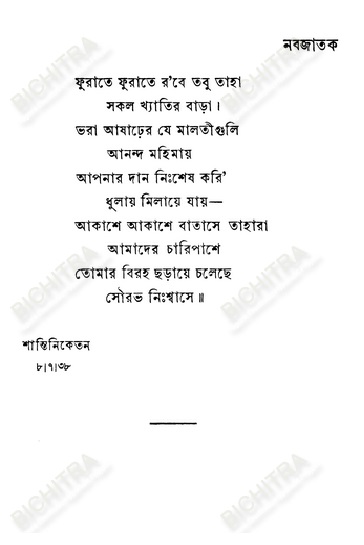 নবজাতক
ফুরাতে ফুরাতে র'বে তবু তাহা
সকল খ্যাতির বাড়া।
ভরা আষাঢ়ের যে মালতীগুলি
আনন্দ মহিমায়
আপনার দান নিঃশেষ করি'
ধুলায় মিলায়ে যায়—
আকাশে আকাশে বাতাসে তাহারা
আমাদের চারিপাশে
তোমার বিরহ ছড়ায়ে চলেছে
সৌরভ নিঃশ্বাসে॥
শান্তিনিকেতন
৮।৭।৩৮
BICHITRA
BICHITRA
BICHITRA
BICHITRA
BICHITRA
BICHITRA